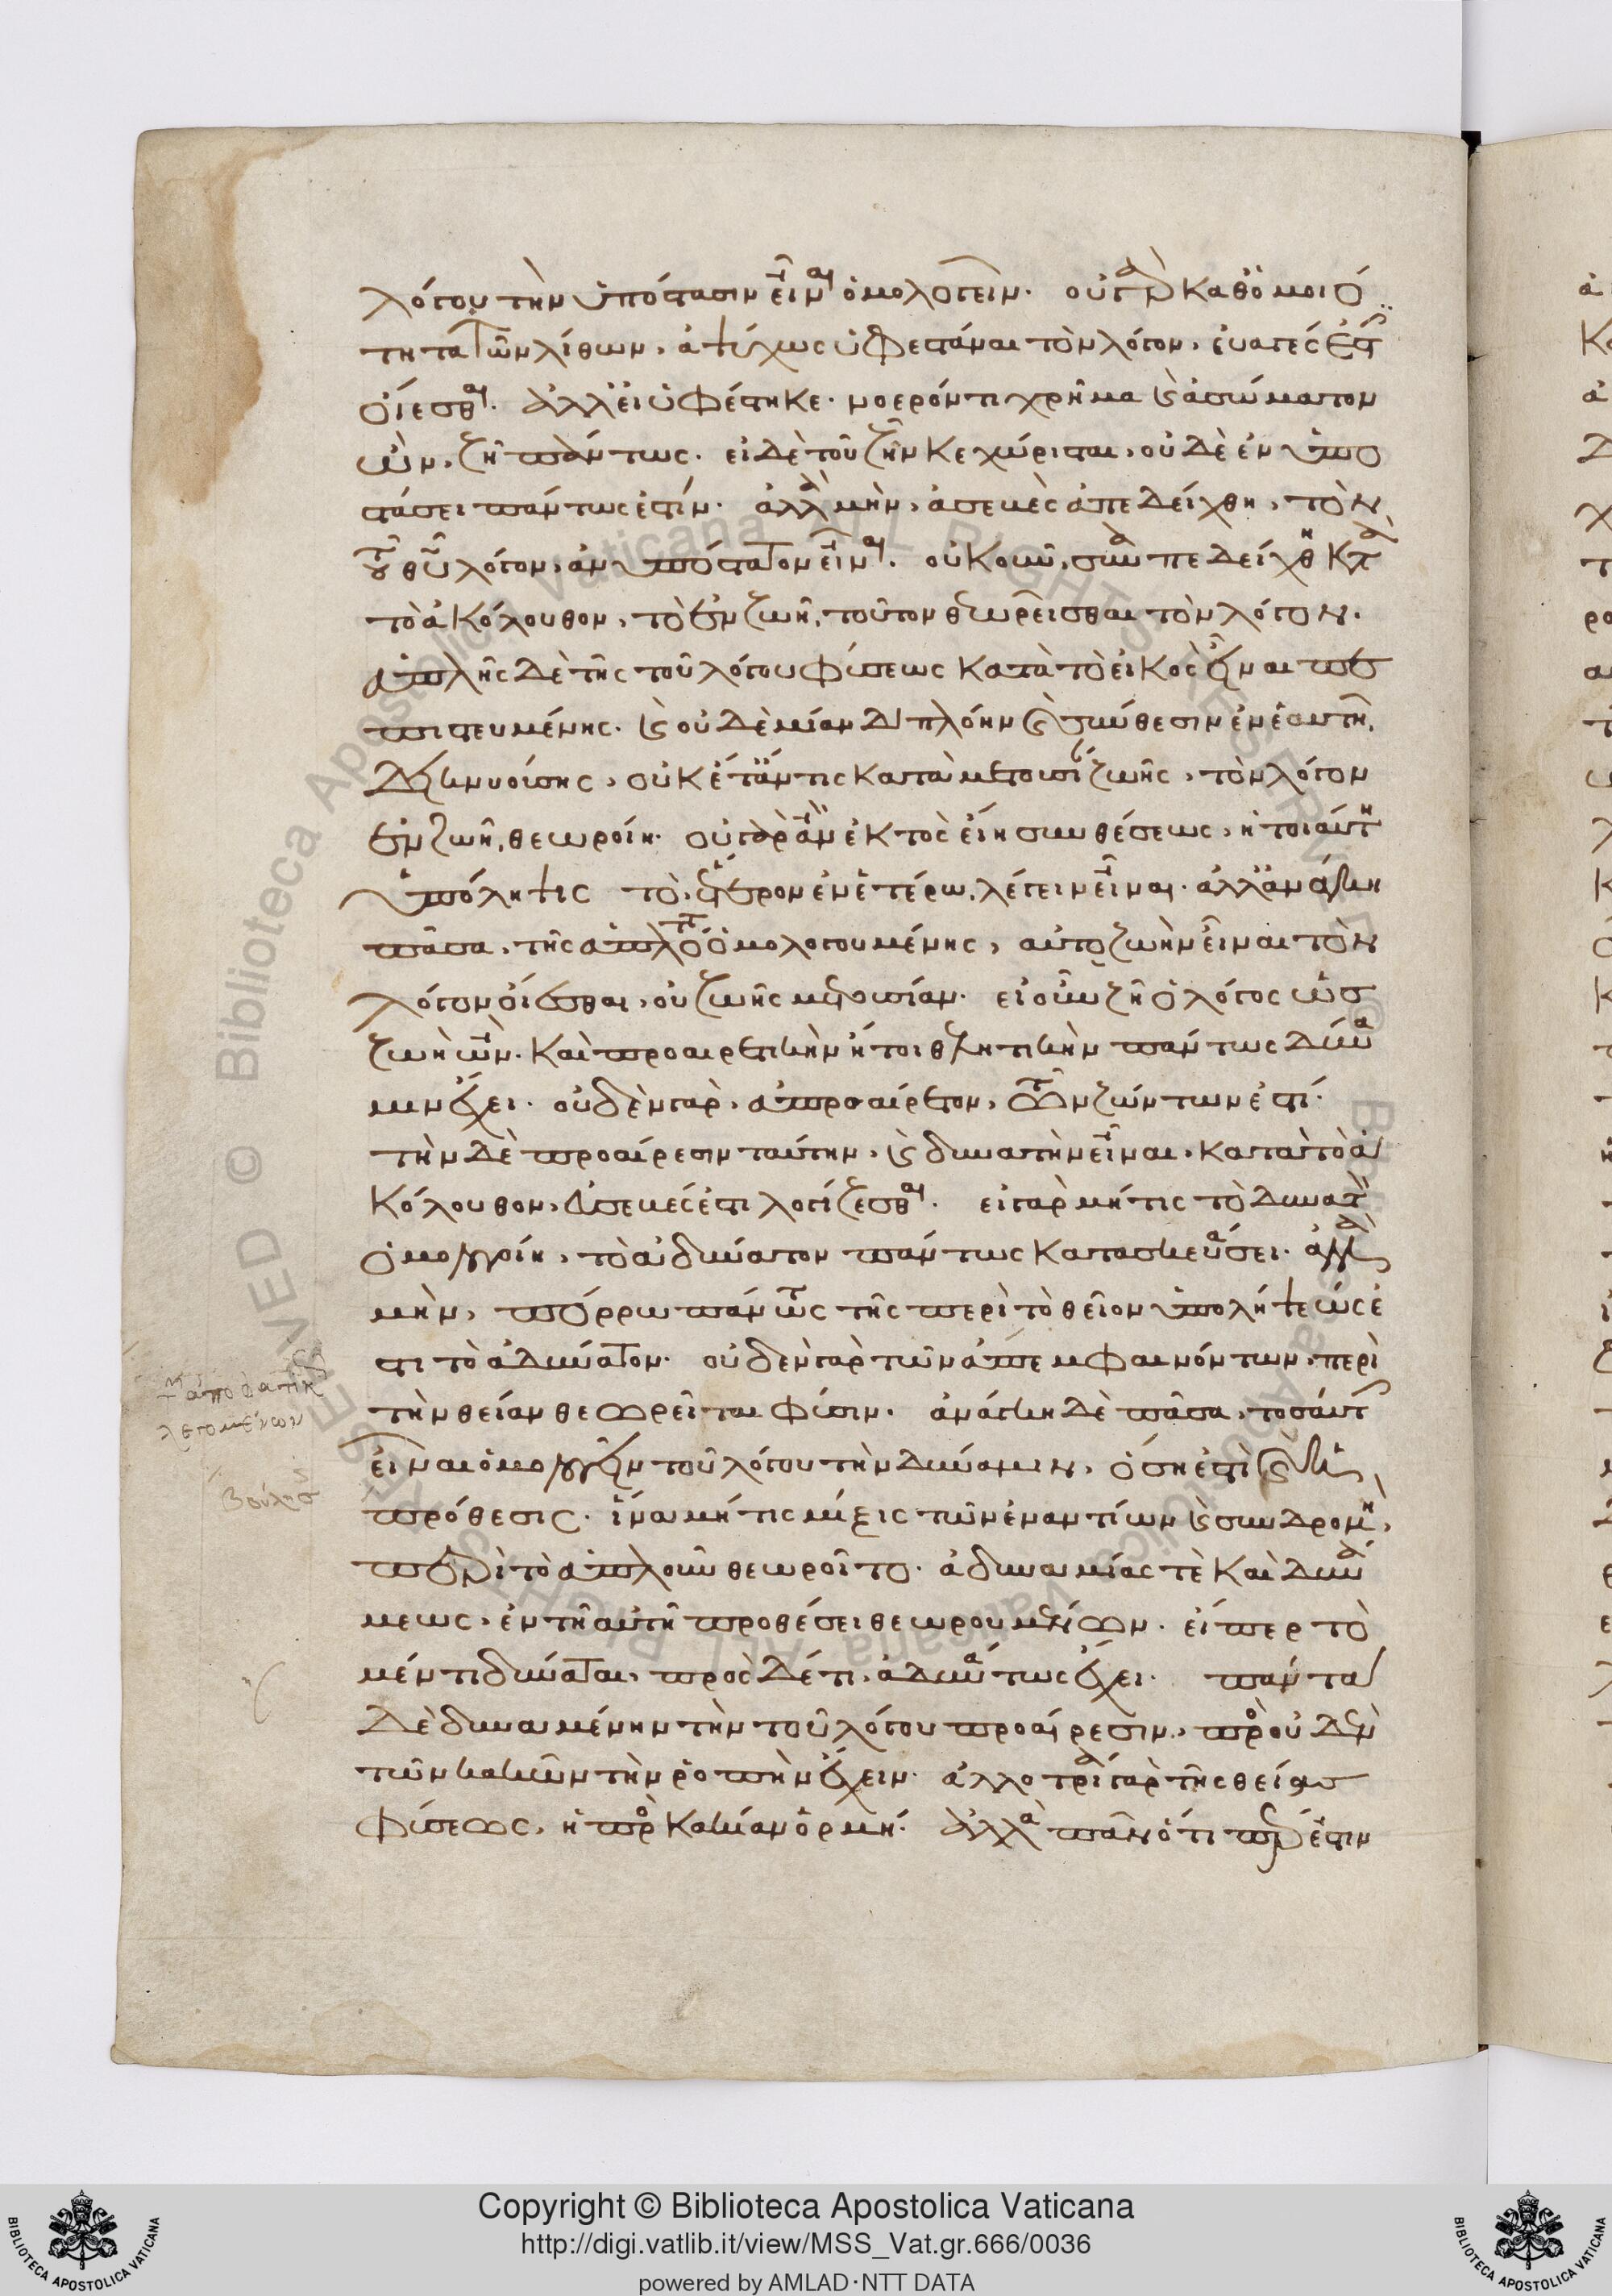 λόγου τὴν ὑπόστασιν εἶναι ὁμολογεῖν. οὐ γὰρ καθ ὁμοιό
τητα τῶν λίθων, ἀψύχως ὑφεστάναι τὸν λόγον, εὐαγές ἐστιν
οἴεσθαι. ἀλλ εἰ ὑφέστηκε νοερόν τι χρῆμα καὶ ἀσώματον
ὢν, ζῆ πάντως. εἰ δὲ τοῦ ζῆν κεχώρισται, οὐδὲ ἐν ὑπο
στάσει πάντως ἐστίν. ἀλλὰ μὴν, ἀσεβὲς ἀπεδείχθη, τὸν
τοῦ θεοῦ λόγον, ἀνυπόστατον εἶναι. οὐκοῦν, συναπεδείχθη κατὰ
τὸ ἀκόλουθον, τὸ ἐν ζωῆ, τοῦτον θεωρεῖσθαι τὸν λόγον.
ἁπλῆς δὲ τῆς τοῦ λόγου φύσεως κατὰ τὸ εἰκὸς εἶναι πε
πιστευμένης. καὶ οὐδὲ μίαν διπλόην καὶ σύνθεσιν ἐν ἑαυτῆ,
δεικνυούσης, οὐκέτ ἄν τις κατὰ μετουσίαν ζωῆς, τὸν λόγον
ἐν ζωῆ, θεωροίη. οὐ γὰρ ἂν ἐκτὸς εἴη συνθέσεως, ἡ τοιαύτη
ὑπόληψις τὸ, ἕτερον ἐν ἑτέρω, λέγειν εἶναι. ἀλλ ἀνάγκη
πᾶσα, τῆς ἁπλότητος ὁμολογουμένης, αὐτοζωὴν εἶναι τὸν
λόγον οἴεσθαι, οὐ ζωῆς μετουσίαν. εἰ οὖν ζῆ ὁ λόγος ὡς
ζωὴ ὢν. καὶ προαιρετικὴν ἤτοι θελητικὴν πάντως δύνα
μιν ἔχει. οὐδὲν γὰρ, ἀπροαίρετον, τῶν ζώντων ἐστί.
τὴν δὲ προαίρεσιν ταύτην, καὶ δυνατὴν εἶναι, κατὰ τὸ ἀ
κόλουθον, εὐσεβές ἐστι λογίζεσθαι. εἰ γὰρ μή τις τὸ δυνατὸν
ὁμολογοίη, τὸ ἀδύνατον πάντως κατασκευάσει. ἀλλὰ
μὴν, πόρρω πάντως τῆς περὶ τὸ θεῖον ὑπολήψεώς ἐ
στι τὸ ἀδύνατον. οὐδὲν γὰρ τῶν ἀπεμφαινόντων, περὶ
τὴν θείαν θεωρεῖται φύσιν. ἀνάγκη δὲ πᾶσα, τοσαύτην
εἶναι ὁμολογεῖν τοῦ λόγου τὴν δύναμιν, ὅση ἐστὶ καὶ ἡ
πρόθεσις. ἵνα μή τις μίξις τῶν ἐναντίων καὶ συνδρομὴ,
περὶ τὸ ἁπλοῦν θεωροῖτο. ἀδυναμίας τὲ καὶ δυνά
μεως, ἐν τῆ αὐτῆ προθέσει θεωρουμένων. εἴπερ τὸ
μέν τι δύναται, πρὸς δέ τι, ἀδυνάτως ἔχει. πάντα
δὲ δυναμένην τὴν τοῦ λόγου προαίρεσιν, πρὸς οὐδὲν
τῶν κακῶν τὴν ῥοπὴν ἔχειν. ἀλλοτρία γὰρ τῆς θείας
φύσεως, ἡ πρὸς κακίαν ὁρμή. ἀλλὰ πᾶν ὅτι πέρ ἐστιν
τῶν ἀποφατικῶς
λεγομένων